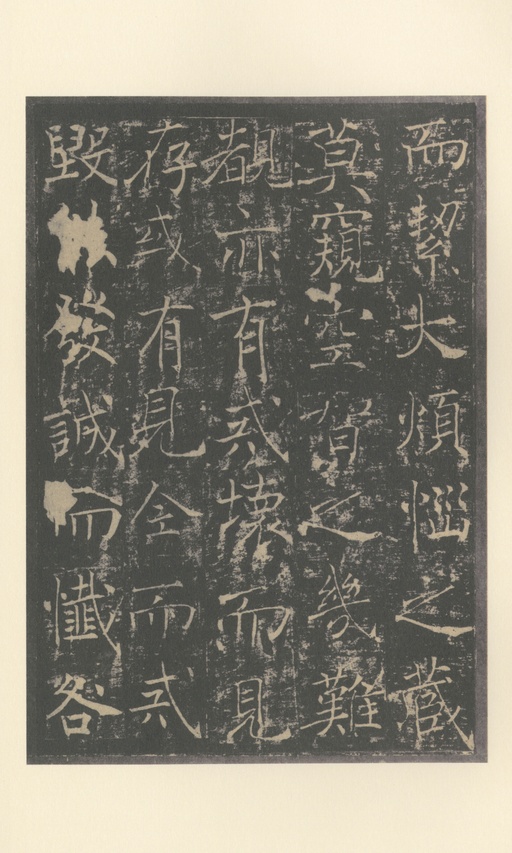 而絜大煩惱之藏
莫窺空之幾難
覩亦有壞而見
存或有見全而
毀發誠而懺咎